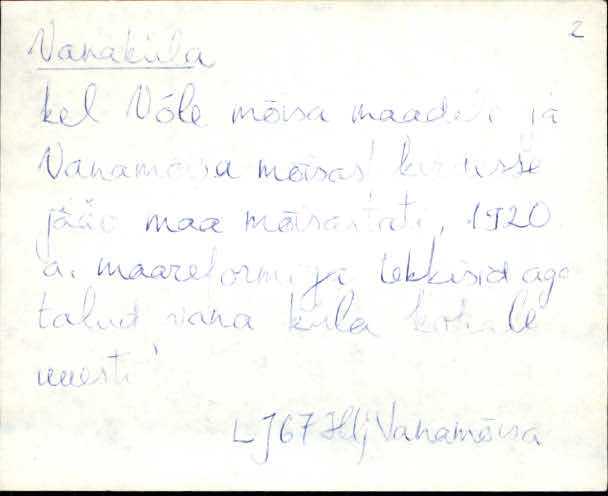 2
Vanaküla
kel Võle mõisa maadel ja
Vanamõisa mõisast kirdesse
jääv maa mõisastati, 1920.
a. maareformiga tekkisid aga
talud vana küla kohale
uuesti
LJ67 Hlj Vanamõisa